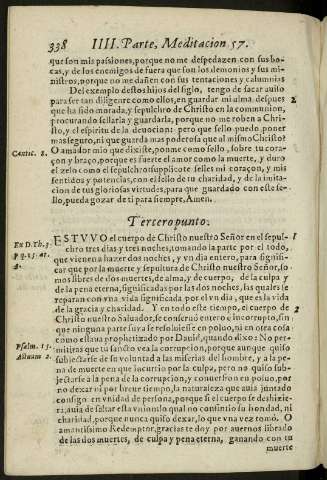 338 IIII. Parte, Meditacion 57.
que son mis passiones, porque no me despedazen con sus bo-
cas, y de los enemigos de fuera que son los demonios y sus mi-
nistros, porque no me dañen con sus tentaciones y calumnias
Del exemplo destos hijos del siglo, tengo de sacar auiso
para ser tan diligente como ellos, en guardar mi alma, despues 2
que ha sido morada, y sepulchro de Christo en la communion,
procurando sellarla y guardarla, porque no me roben a Chri-
sto, y el espiritu de la deuocion: pero que sello puedo poner
mas seguro, ni que guarda mas poderosa que al mismo Christo?
Cantic. 8. O amador mio que dixiste, ponme como sello, sobre tu cora-
çon y braço, porque es fuerte el amor como la muerte, y duro
el zelo como el sepulchro: suplicote selles mi coraçon, y mis
sentidos y potencias, con el sello de tu charidad, y de la imita-
cion de tus gloriosas virtudes, para que guardado con este se-
llo, pueda gozar de ti para siempre, Amen.
Tercero punto.
En D. Th. 3. ESTVVO el cuerpo de Christo nuestro Señor en el sepul- 1
p. q. 51. ar. chro tres dias y tres noches, tomando la parte por el todo,
4. que viene na hazer dos noches, y vn dia entero, para signifi-
car que por la muerte y sepultura de Christo nuestro Señor, so-
mos libres de dos muertes, de alma, y de cuerpo, de la culpa y
de la pena eterna, significadas por las dos noches, las quales se
reparan con vna vida significada por el vn dia, que es la vida
de la gracia y chasidad. Y en todo este tiempo, el cuerpo de 2
Christo nuestro Saluador, se conseruò entero e incorrupto, sin
que ninguna parte suya se resoluiesse en poluo, ni en otra cosa
Psalm. 15. como estaua prophetizado por Dauid, quando dixo: No per-
Actuum 2. mitiràs que tu sancto vea la corrupcion, porque aunque quiso
subjectarse de su voluntad a las miserias del hombre, y a la pe-
na de muerte en que incurrio por la culpa, pero no quiso sub-
jectarse a la pena de la corrupcion, y conuersion en poluo, por
no dexar ni por breue tiempo, la naturaleza que auia juntado
consigo en vnidad de persona, porque si el cuerpo se deshizie-
ra, auia de faltar esta vnion, lo qual no consintio su bondad, ni
charidad, porque nunca quiso dexar, lo que vna vez tomò. O
amantissimo Redemptor, gracias te doy por auernos librado
de las dos muertes, de culpa y pena eterna, ganando con tu
muerte